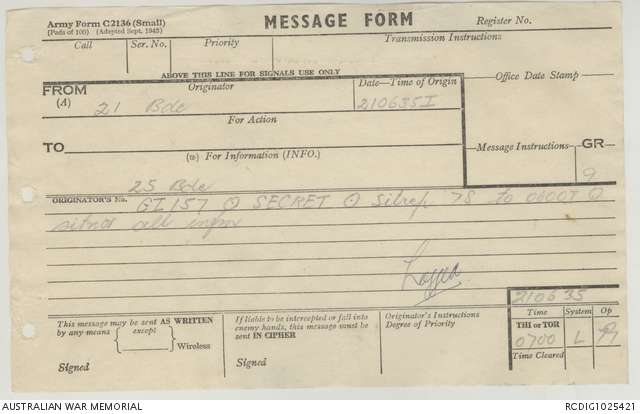 Army Form C2136 (Small)
(Pads of 100) (Adapted Sept. 1945)
MESSAGE FORM
Register No.
Call
Ser. No.
Priority
Transmission Instructions
ABOVE THIS LINE FOR SIGNALS USE ONLY
FROM
(A)
Originator
Date–Time of Origin
Office Date Stamp
21 Bde
210635I
For Action
TO
(w) For Information (INFO.)
Message Instructions
GR
9
25 Bde
ORIGINATOR'S No.
GI 157 ⊙ SECRET ⊙ Sitrep 78 to 0600I ⊙
sitna all infm
210635
This message may be sent AS WRITTEN
by any means
except
Wireless
Signed
If liable to be intercepted or fall into
enemy hands, this message must be
sent IN CIPHER
Signed
Originator's Instructions
Degree of Priority
Time
System
Op
THI or TOR
0700
L
Time Cleared
AUSTRALIAN WAR MEMORIAL
RCDIG1025421